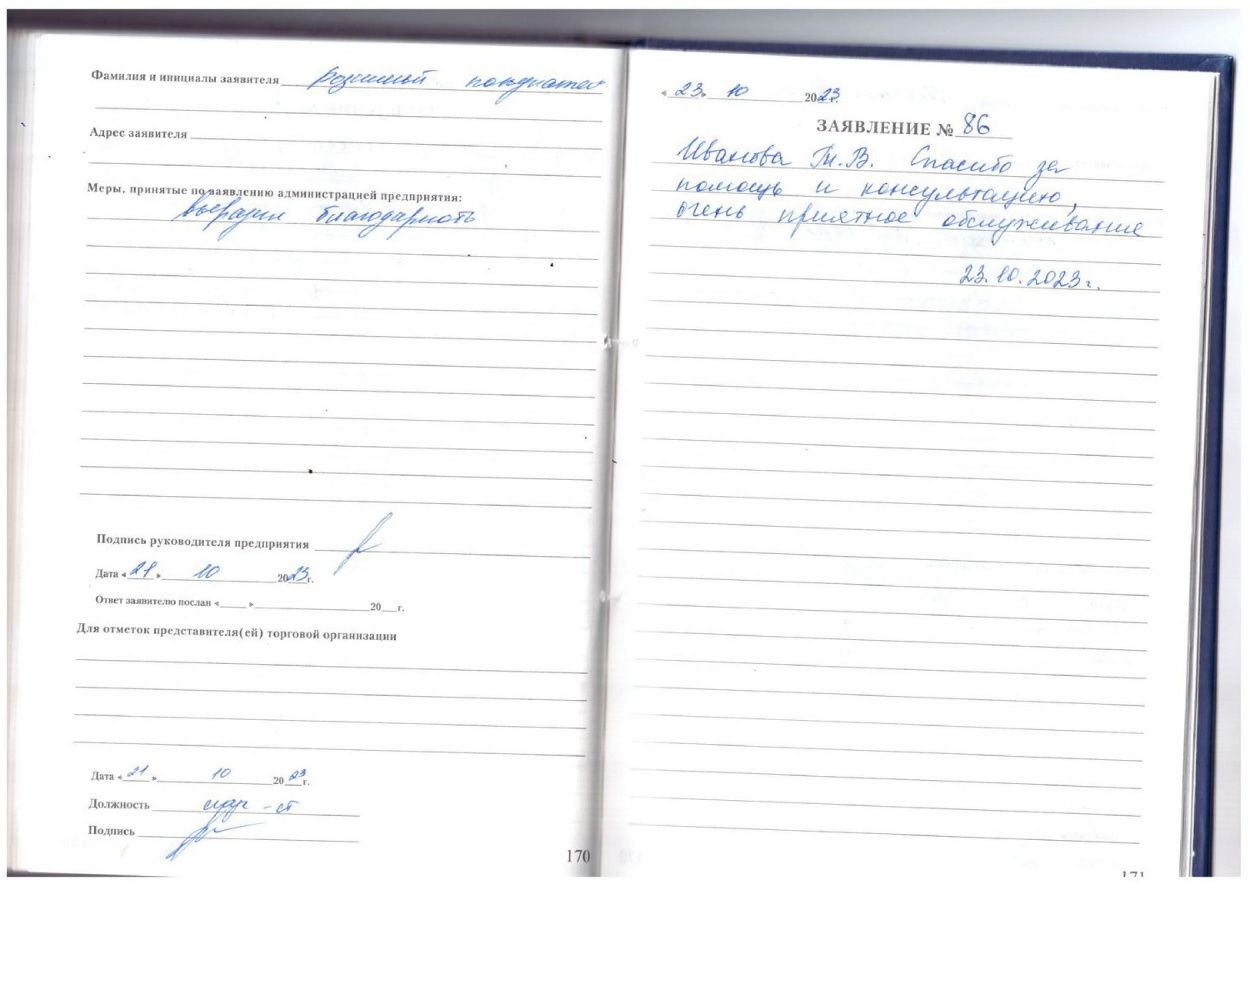 Фамилия и инициалы заявителя
Адрес заявителя
Меры, принятые по заявлению администрацией предприятия:
благодарность
Подпись руководителя предприятия
Дата «21» 10 2023г.
Ответ заявителю послан «     »      20   г.
Для отметок представителя(ей) торговой организации
Дата «21» 10 2023г.
Должность
Подпись
170
«23» 10 2023г.
ЗАЯВЛЕНИЕ № 86
Иванова Т.В. Спасибо за
помощь и консультацию,
очень приятное обслуживание
23.10.2023г.
171